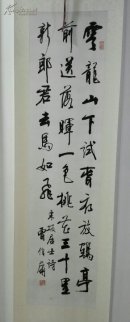 雲龍山下試春衣放鶴亭
前送落暉一色桃花三十里
新郎君去馬如飛
東坡居士詩